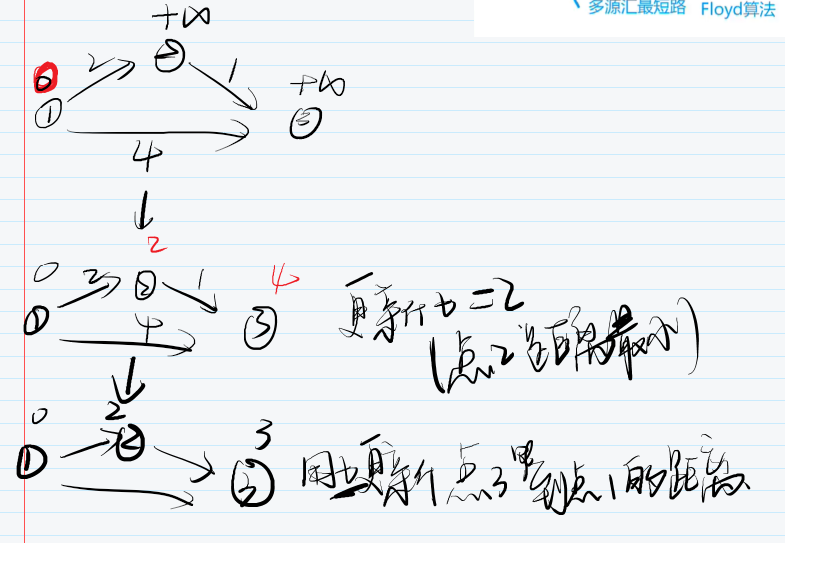 多源汇最短路 Floyd算法
+∞
0 2 ② 1 +∞
① ③
4
2
0 2 ② 1 4
① 4 ③ 更新 t = 2
(点2 距离最小)
0 2 3
① ② ③ 用t更新 点3 到点1的距离